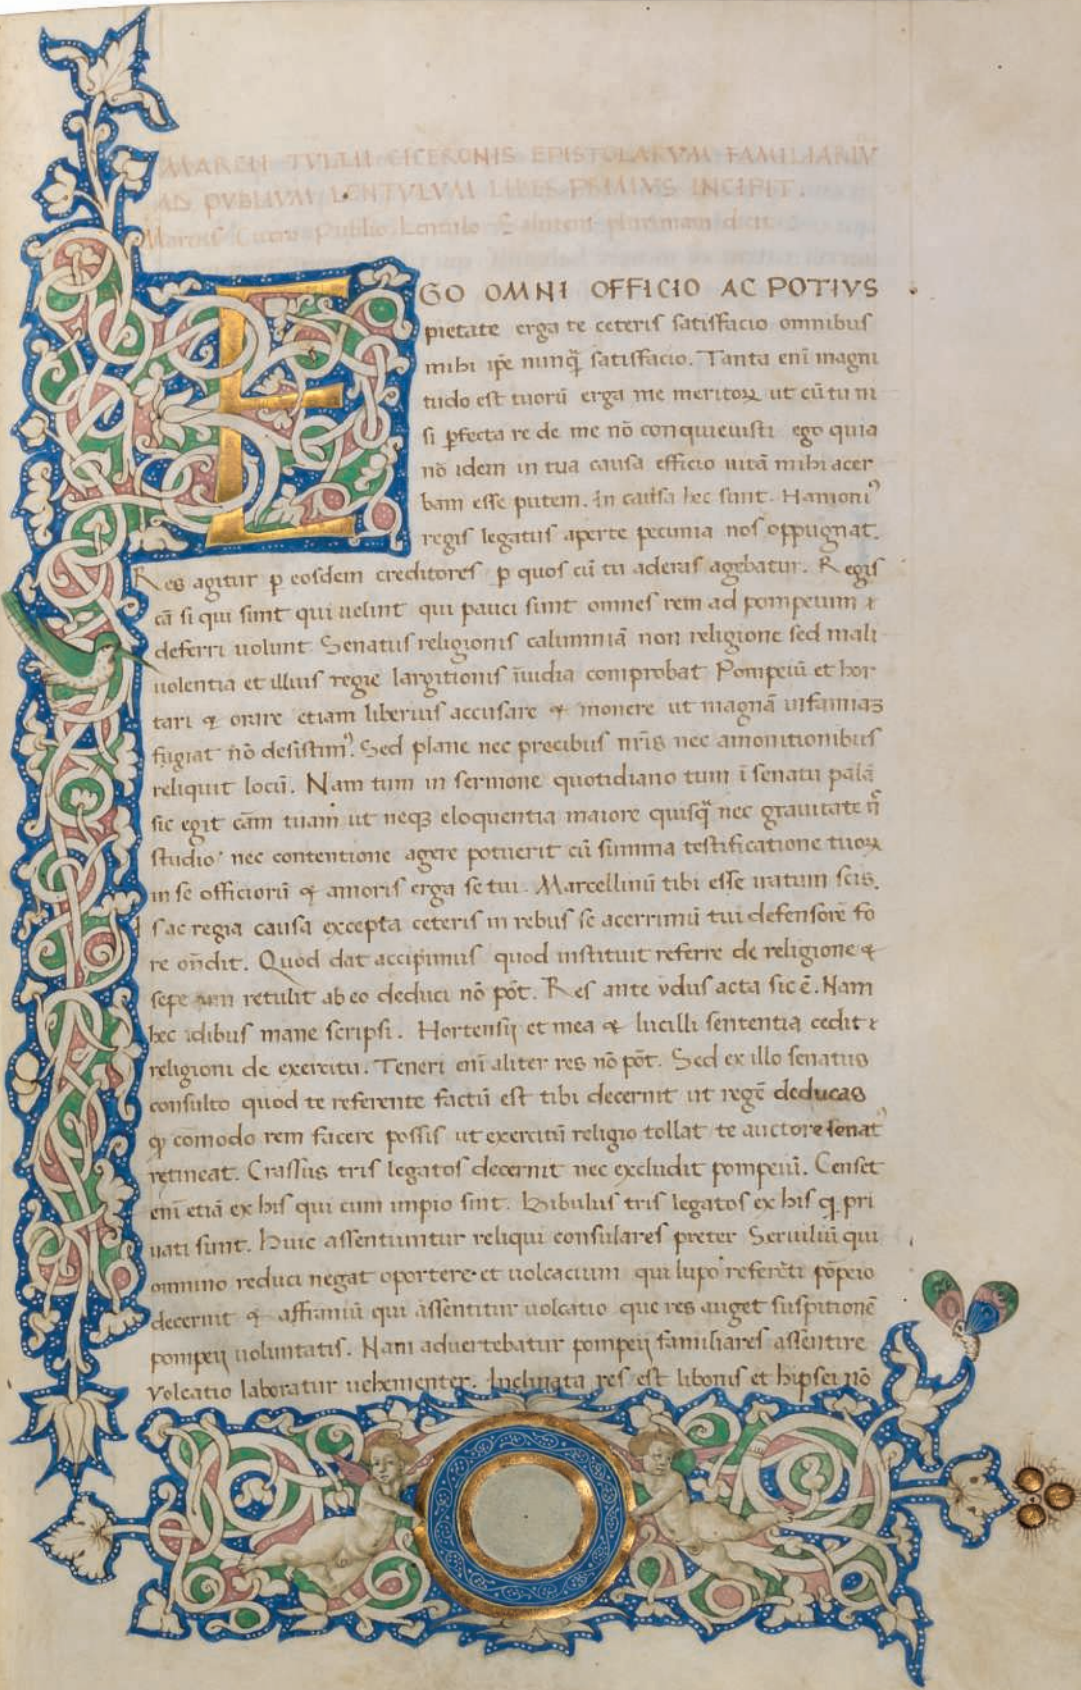 MARCII TVLLII CICERONIS EPISTOLARVM FAMILIARIṼ
AD PVBLIVM LENTVLVM LIBER PRIMVS INCIPIT.
Marcus Cicero Publio Lentulo Salutem plurimam dicit
EGO OMNI OFFICIO AC POTIVS
pietate erga te ceteris satisfacio omnibus
mihi ip̃e nunq̃ satisfacio. Tanta enĩ magni
tudo est tuorũ erga me meritoꝝ ut cũ tu ni
si ꝑfecta re de me nõ conquievisti ego quia
nõ idem in tua causa efficio uitã mihi acer
bam esse putem. In causa hec sunt. Hamoniꝰ
regis legatus aperte pecunia nos oppugnat.
Res agitur ꝑ eosdem creditores ꝑ quos cũ tu aderas agebatur. Regis
cã si qui sunt qui uelint qui pauci sunt omnes rem ad pompeium
deferri uolunt Senatus religionis calumniã non religione sed mali
uolentia et illius regie largitionis ĩuidia comprobat Pompeiũ et hor
tari ⁊ orare etiam liberius accusare ⁊ monere ut magnã infamiaꝫ
fugiat nõ desistimꝰ. Sed plane nec precibus nr̃is nec amonitionibus
reliquit locũ. Nam tum in sermone quotidiano tum ĩ senatu palã
sic egit cãm tuam ut neqꝫ eloquentia maiore quisq̃ nec grauitate ñ
studio nec contentione agere potuerit cũ summa testificatione tuoꝝ
in se officiorũ ⁊ amoris erga se tui. Marcellinũ tibi esse iratum scis.
Is ac regia causa excepta ceteris in rebus se acerrimũ tui defensorẽ fo
re oñdit. Quod dat accipimus quod instituit referre de religione ⁊
sepe iam retulit ab eo deduci nõ põt. Res ante ydus acta sic ẽ. Nam
hec idibus mane scripsi. Hortensij et mea ⁊ lucilli sententia cedit
religioni de exercitu. Teneri enĩ aliter res nõ põt. Sed ex illo senatus
consulto quod te referente factũ est tibi decernit ut regẽ deducas
comodo rem facere possis ut exercitũ religio tollat te auctore senatꝰ
retineat. Crassus tris legatos decernit nec excludit pompeiũ. Censet
enĩ etiã ex his qui cum impio sint. Bibulus tris legatos ex his q̃ pri
uati sunt. Huic assentiuntur reliqui consulares preter Seruiliũ qui
omnino reduci negat oportere et uolcacium qui lupo referẽti põpeio
decernit ⁊ affraniũ qui assentitur uolcatio que res auget suspitionẽ
pompeij uoluntatis. Nam advertebatur pompeij familiares assentire
Volcatio laboratur uehementer. Inclinata res est libonis et hipsei nõ